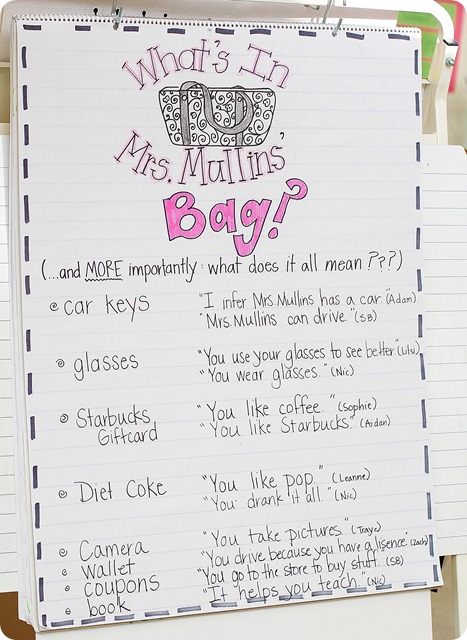 What's In
Mrs. Mullins'
Bag?
(...and MORE importantly: what does it all mean???)
car keys "I infer Mrs. Mullins has a car." (Adam)
"Mrs. Mullins can drive." (SB)
glasses "You use your glasses to see better." (Lilia)
"You wear glasses." (Nic)
Starbucks "You like coffee." (Sophie)
Giftcard "You like Starbucks." (Aidan)
Diet Coke "You like pop." (Leanne)
"You drank it all." (Nic)
Camera "You take pictures." (Traye)
wallet "You drive because you have a lisence. (Zach)
coupons "You go to the store to buy stuff. (SB)
book "It helps you teach." (Nic)